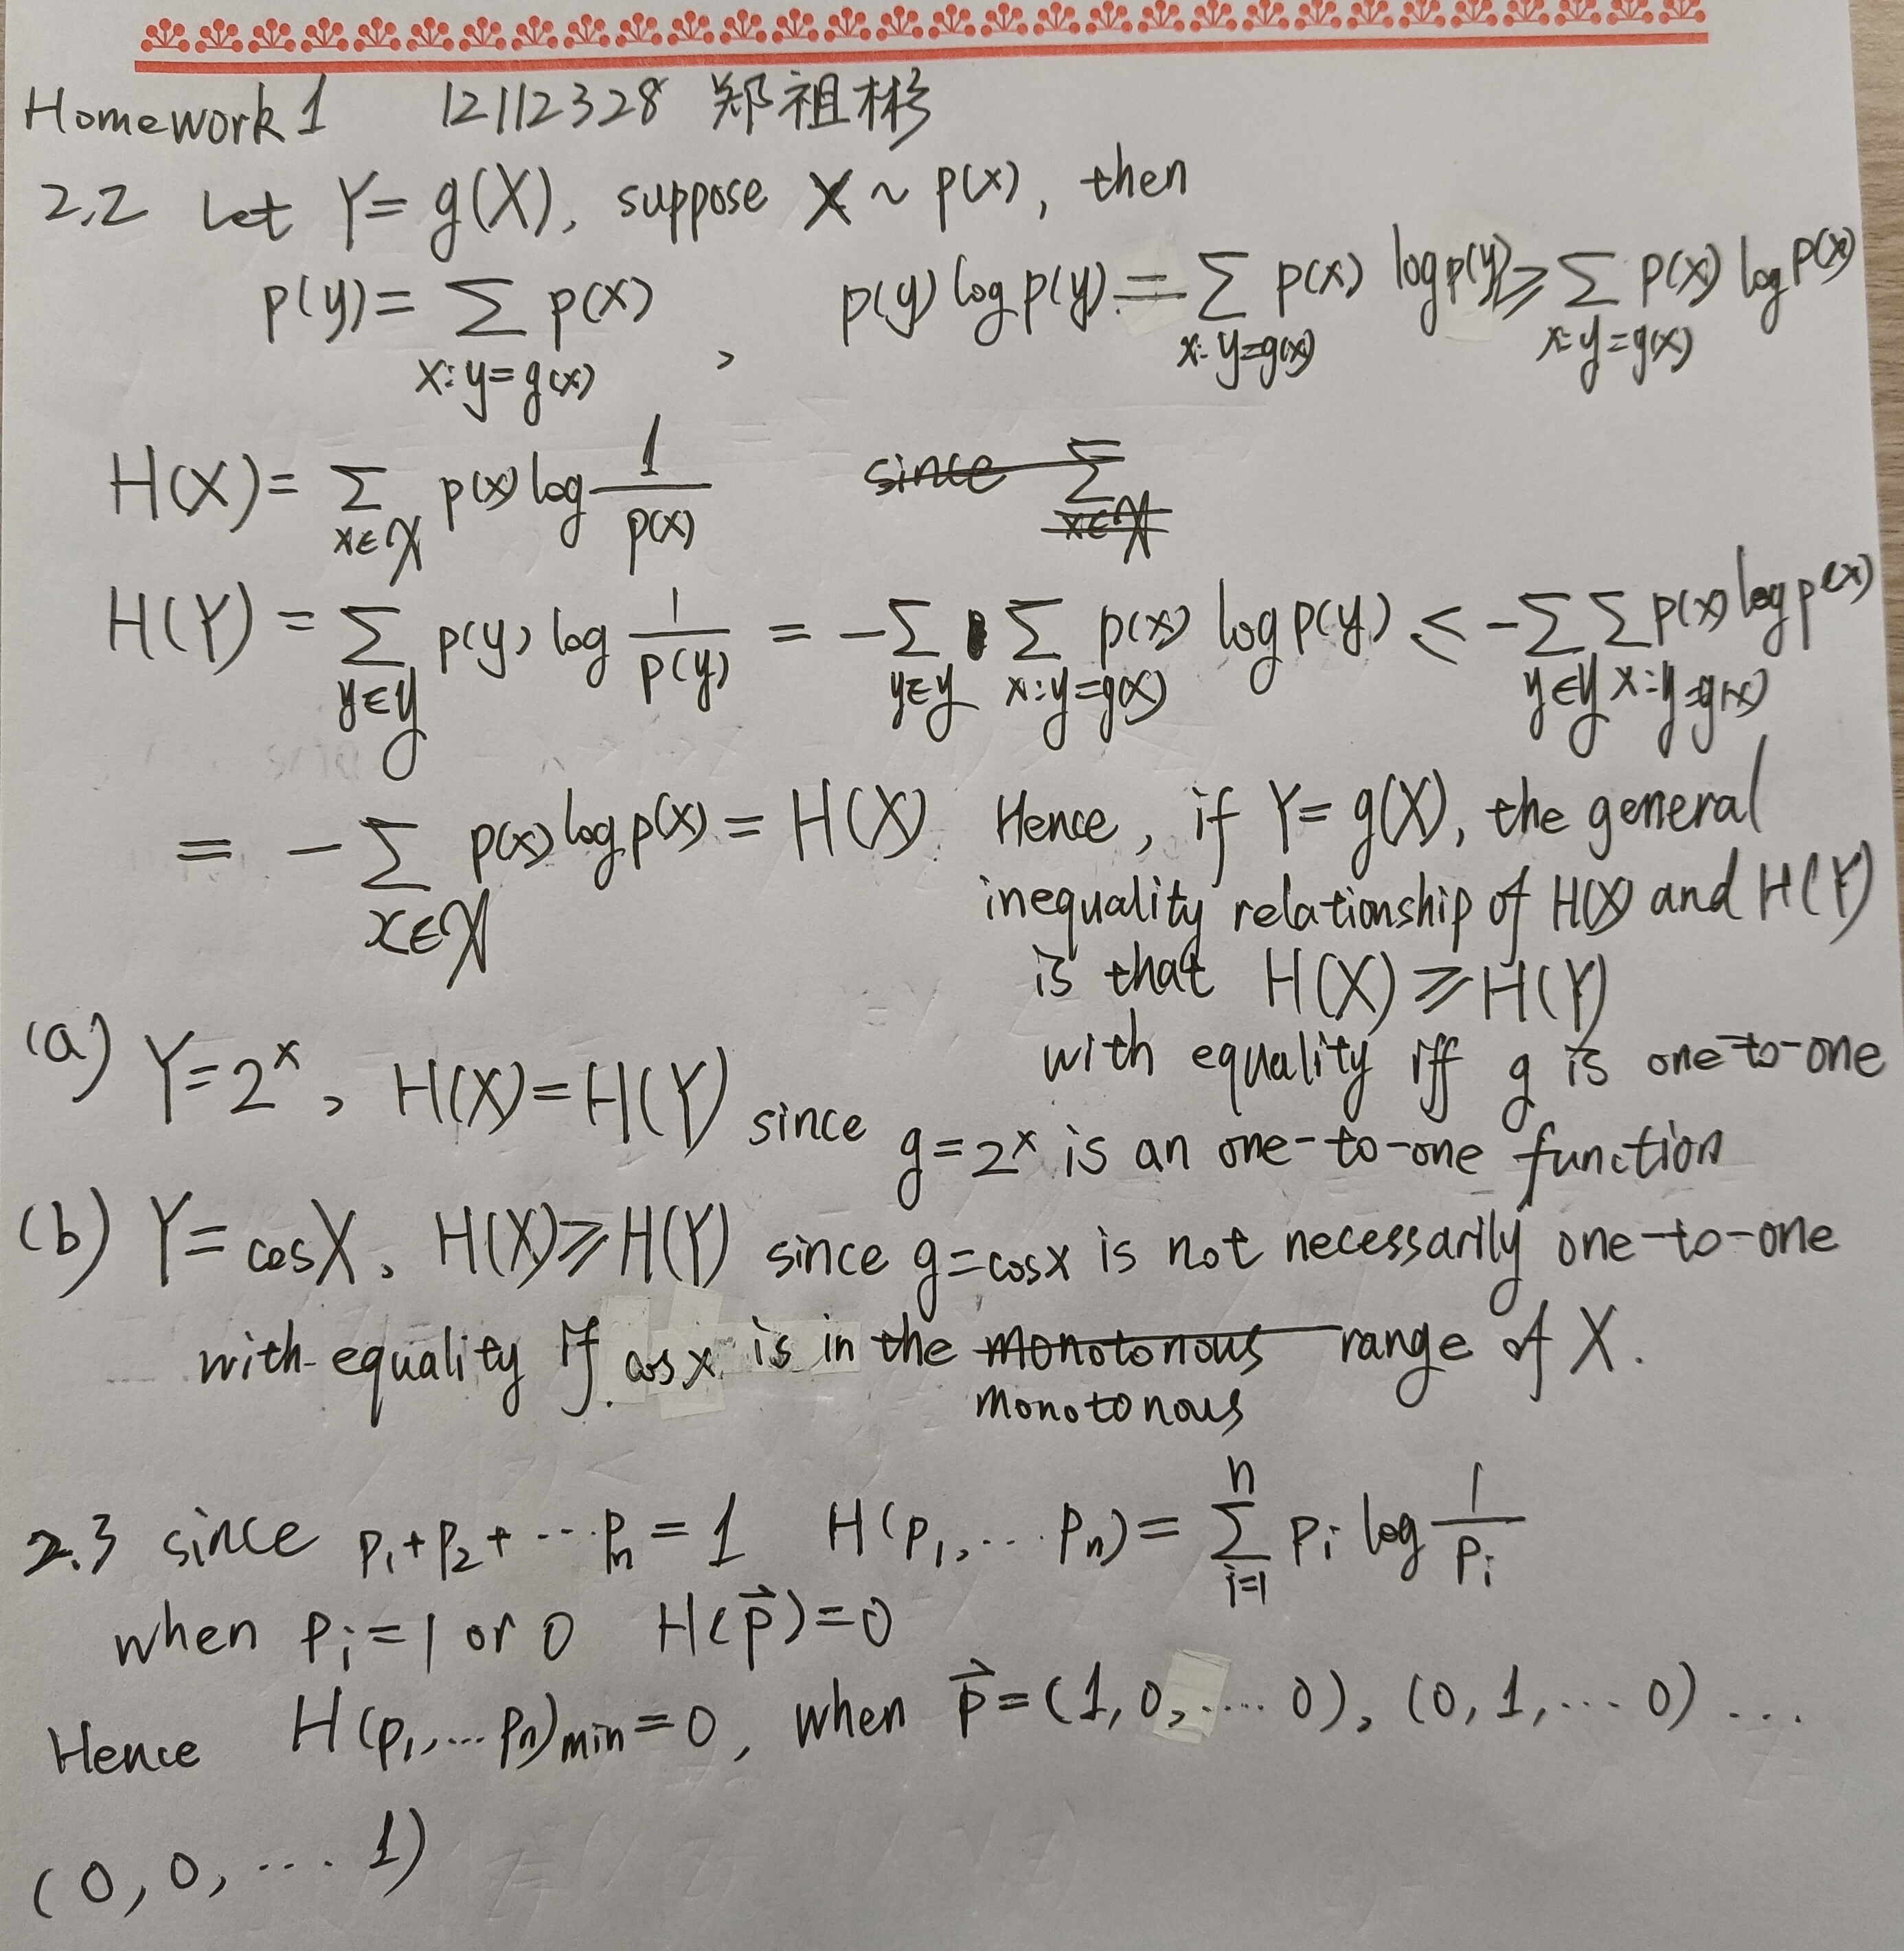 Homework 1 12112328 郑祖彬
2.2 Let Y = g(X), suppose X ~ p(x), then
p(y) = ∑_{x:y=g(x)} p(x) , p(y) log p(y) = ∑_{x:y=g(x)} p(x) log p(y) ⩾ ∑_{x:y=g(x)} p(x) log p(x)
H(X) = ∑_{x∈𝒳} p(x) log 1/p(x) ~~since ∑_{x∈𝒳}~~
H(Y) = ∑_{y∈𝒴} p(y) log 1/p(y) = -∑_{y∈𝒴} ∑_{x:y=g(x)} p(x) log p(y) ⩽ -∑_{y∈𝒴} ∑_{x:y=g(x)} p(x) log p(x)
= -∑_{x∈𝒳} p(x) log p(x) = H(X) Hence, if Y = g(X), the general
inequality relationship of H(X) and H(Y)
is that H(X) ⩾ H(Y)
with equality iff g is one-to-one
(a) Y = 2^x, H(X) = H(Y) since g = 2^x is an one-to-one function
(b) Y = cosX, H(X) ⩾ H(Y) since g = cosx is not necessarily one-to-one
with equality if cosx is in the ~~monotonous~~ range of X.
monotonous
2.3 since p₁+p₂+⋯pₙ = 1 H(p₁,…pₙ) = ∑_{i=1}^{n} pᵢ log 1/pᵢ
when pᵢ = 1 or 0 H(p⃗) = 0
Hence H(p₁,…pₙ)min = 0, when p⃗ = (1,0,…0), (0,1,…0) …
(0,0,…1)